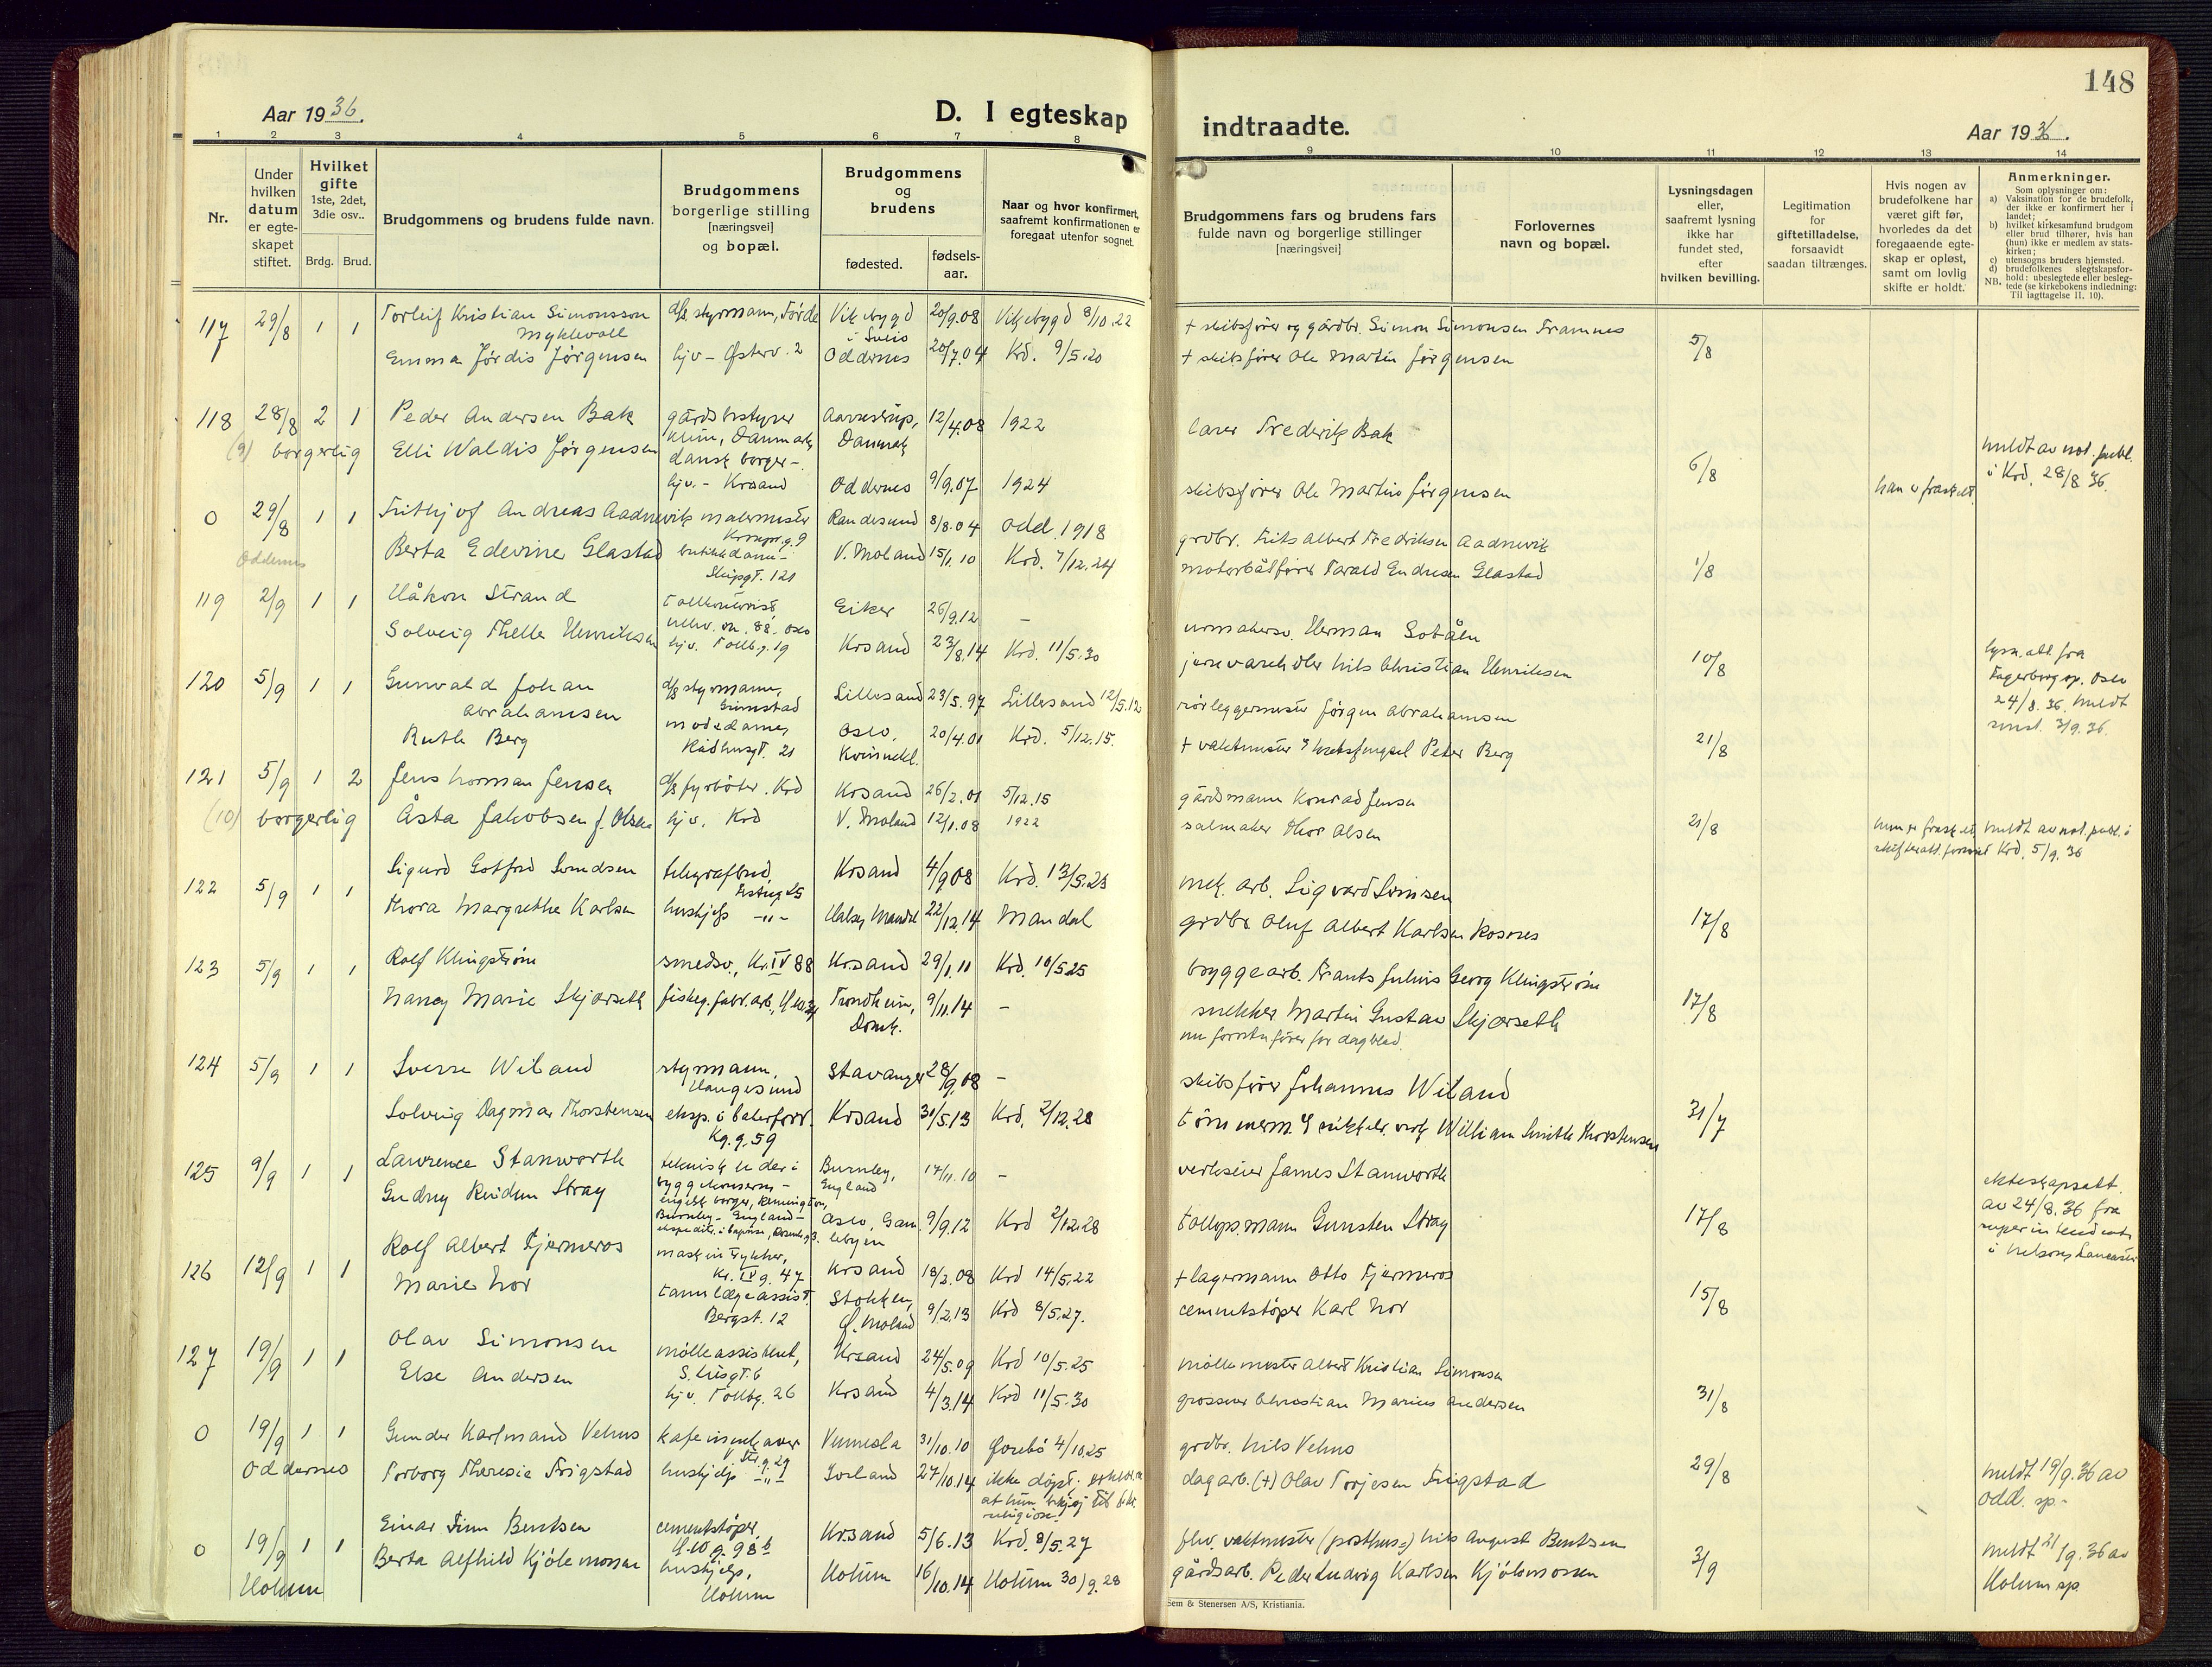 148
Aar 1936.
D. I egteskap
indtraadte.
Aar 1936.
1 2 3 4 5 6 7 8
9 10 11 12 13 14
Nr.
Under hvilken datum er egte-skapet stiftet.
Hvilket gifte 1ste, 2det, 3die osv..
Brdg. Brud.
Brudgommens og brudens fulde navn.
Brudgommens borgerlige stilling [næringsvei] og bopæl.
Brudgommens og brudens
fødested.
fødsels-aar.
Naar og hvor konfirmert, saafremt konfirmationen er foregaat utenfor sognet.
Brudgommens fars og brudens fars fulde navn og borgerlige stillinger [næringsvei]
Forlovernes navn og bopæl.
Lysningsdagen eller, saafremt lysning ikke har fundet sted, efter hvilken bevilling.
Legitimation for giftetilladelse, forsaavidt saadan tiltrænges.
Hvis nogen av brudefolkene har været gift før, hvorledes da det foregaaende egte-skap er opløst, samt om lovlig skifte er holdt.
Anmerkninger.
Som oplysninger om:
a) Vaksination for de brudefolk, der ikke er konfirmert her i landet;
b) hvilket kirkesamfund brudgom eller brud tilhører, hvis han (hun) ikke er medlem av stats-kirken;
c) utensogns bruders hjemsted.
d) brudefolkenes slegtskapsfor-hold: ubeslegtede eller besleg-tede (se kirkebokens indledning: Til iagttagelse II. 10).
NB.
117 29/8 1 1 Torleif Kristian Simonsson Myklevoll d/s styrmann, Førde Vikebygd i Sveio 20/9.08 Vikebygd 8/10.22 + skibsfører og gårdbr. Simon Simonsen Framnes
Emma Jørdis Jørgensen hjv - Østerv. 2 Oddernes 20/7.04 Krd. 9/5.20 + skibsfører Ole Martin Jørgensen 5/8
118 28/8 2 1 Peder Andersen Bak gårdsbestyrer Klim, Danmark dansk borger -. Aarestrup, Danmark 12/4.08 1922 lærer Frederik Bak
(9) borgerlig Elli Waldis Jørgensen hjv. - Krsand Oddernes 9/9.07 1924 skibsfører Ole Martin Jørgensen 6/8 han er fraskilt meldt av not. publ. i Krd. 28/8 36.
0 29/8 1 1 Frithjof Andreas Aadnevik malermester Kronpr.g. 9 Randesund 8/8.04 Odd. 1918 grdbr. Nils Albert Fredriksen Aadnevik
Oddernes Berta Edevine Glastad butikkdame - Skipsgt. 121 V. Moland 15/1.10 Krd. 7/12.24 motorbåtfører Tarald Endresen Glastad 1/8
119 2/9 1 1 Håkon Strand Eiker 26/9.12 - urmakersv. Herman
Solveig Thelle Henriksen hjv. Tollb.g. 19 Krsand 23/8.14 Krd. 11/5.30 jernvarehdler Nils Christian Henriksen 10/8 lysn. att. fra Fagerborg sp. Oslo 24/8.36. meldt smst. 3/9.36.
120 5/9 1 1 Gunvald Johan Abrahamsen d/s styrmann, Grimstad Lillesand 23/5.97 Lillesand 12/5.12 rørleggermester Jørgen Abrahamsen
Ruth Berg modedame, Rådhusgt. 21 Oslo, Kvinnekl. 20/4.01 Krd. 5/12.15. + vaktmester Peter Berg 21/8
121 5/9 1 2 Jens Norman Jensen d/s fyrbøter. Krd Krsand 26/2.01 5/12.15 gårdsmann Konrad Jensen
(10) borgerlig Åsta Jakobsen f. Olsen hjv. Krd V. Moland 12/1.08 1922 salmaker Thor Olsen 21/8 hun er fraskilt, skifteatt. forevist meldt av not. publ. i Krd. 5/9.36
122 5/9 1 1 Sigurd Gotfred telegrafbud, Krsand 4/9 08 Krd. 13/5.23 mek. arb. Sigvard
Thora Margrethe Karlsen hushjelp -"- Halse, Mandal 22/12.14 Mandal grdbr. Oluf Albert Karlsen Rosnes 17/8
123 5/9 1 1 Rolf Klingstrøm smedsv., Kr. IV 88 Krsand 29/1.11 Krd. 10/5 25 bryggearb. Frants Julius Georg Klingstrøm
Nancy Marie Skjærseth Trondheim, Domk. 9/11.14 - snekker Martin Gustav Skjærseth 17/8
nu forretnfører for dagblad.
124 5/9 1 1 Sverre Wiland styrmann, Haugesund Stavanger 28/9.08 - skibsfører Johannes Wiland
Solveig Dagmar Thorstensen eksp. i bakerforr. Kg.g. 59 Krsand 31/5.13 Krd. 2/12.28 tømmerm. William Smith Thorstensen 31/7
125 9/9 1 1 Lawrence Stanworth teknisk leder i byggekonsern - engelsk borger, Burnley - England - Burnley, England 17/11.10 - verkseier James Stanworth
Gudny Reidun Stray Oslo, Gamlebyen 9/9.12 Krd 2/12.28 tollopsmann Gunsten Stray 17/8 ekteskapsatt. av 24/8.36 fra superintendent i Nelson, Lancaster
126 12/9 1 1 Rolf Albert Fjermeros maskintrykker, Kr. IV g. 47 Krsand 18/2.08 Krd 14/5.22 + lagermann Otto Fjermeros
Marie Nor tannlægeassist. Bergst. 12 Stokken, Ø. Moland 9/2.13 Krd 8/5.27. cementstøper Karl Nor 15/8
127 19/9 1 1 Olav Simonsen mølleassistent, Krsand 24/5.09 Krd 10/5.25 møllemester Albert Kristian Simonsen
Else Andersen hjv. Tollbg. 26 Krsand 4/3.14 Krd 11/5.30 grosserer Christian Marius Andersen 31/8
0 19/9 1 1 Gunder Karlmand Vehus kafeinnehaver Vennesla 31/10.10 Øvrebø 4/10.25 grdbr. Nils Vehus
Oddernes Torborg Theresie Frigstad hushjelp -"- Iveland 27/10.14 ikke døpt. dagarb. (+) Olav Torjesen Frigstad 29/8 meldt 19/9.36 av Odd. sp.
0 19/9 1 1 Einar Finn Bentsen cementstøper, Krsand 5/6.13 Krd. 8/5.27 fhv. vaktmester (posthus) Nils August Bentsen
Holum Berta Alfhild Kjølemosen hushjelp, Holum Holum 16/10.14 Holum 30/9.28 gårdsarb. Peder Ludvig Karlsen Kjølemosen 3/9 meldt 21/9.36 av Holum sp.
Sem & Stenersen A/S, Kristiania.